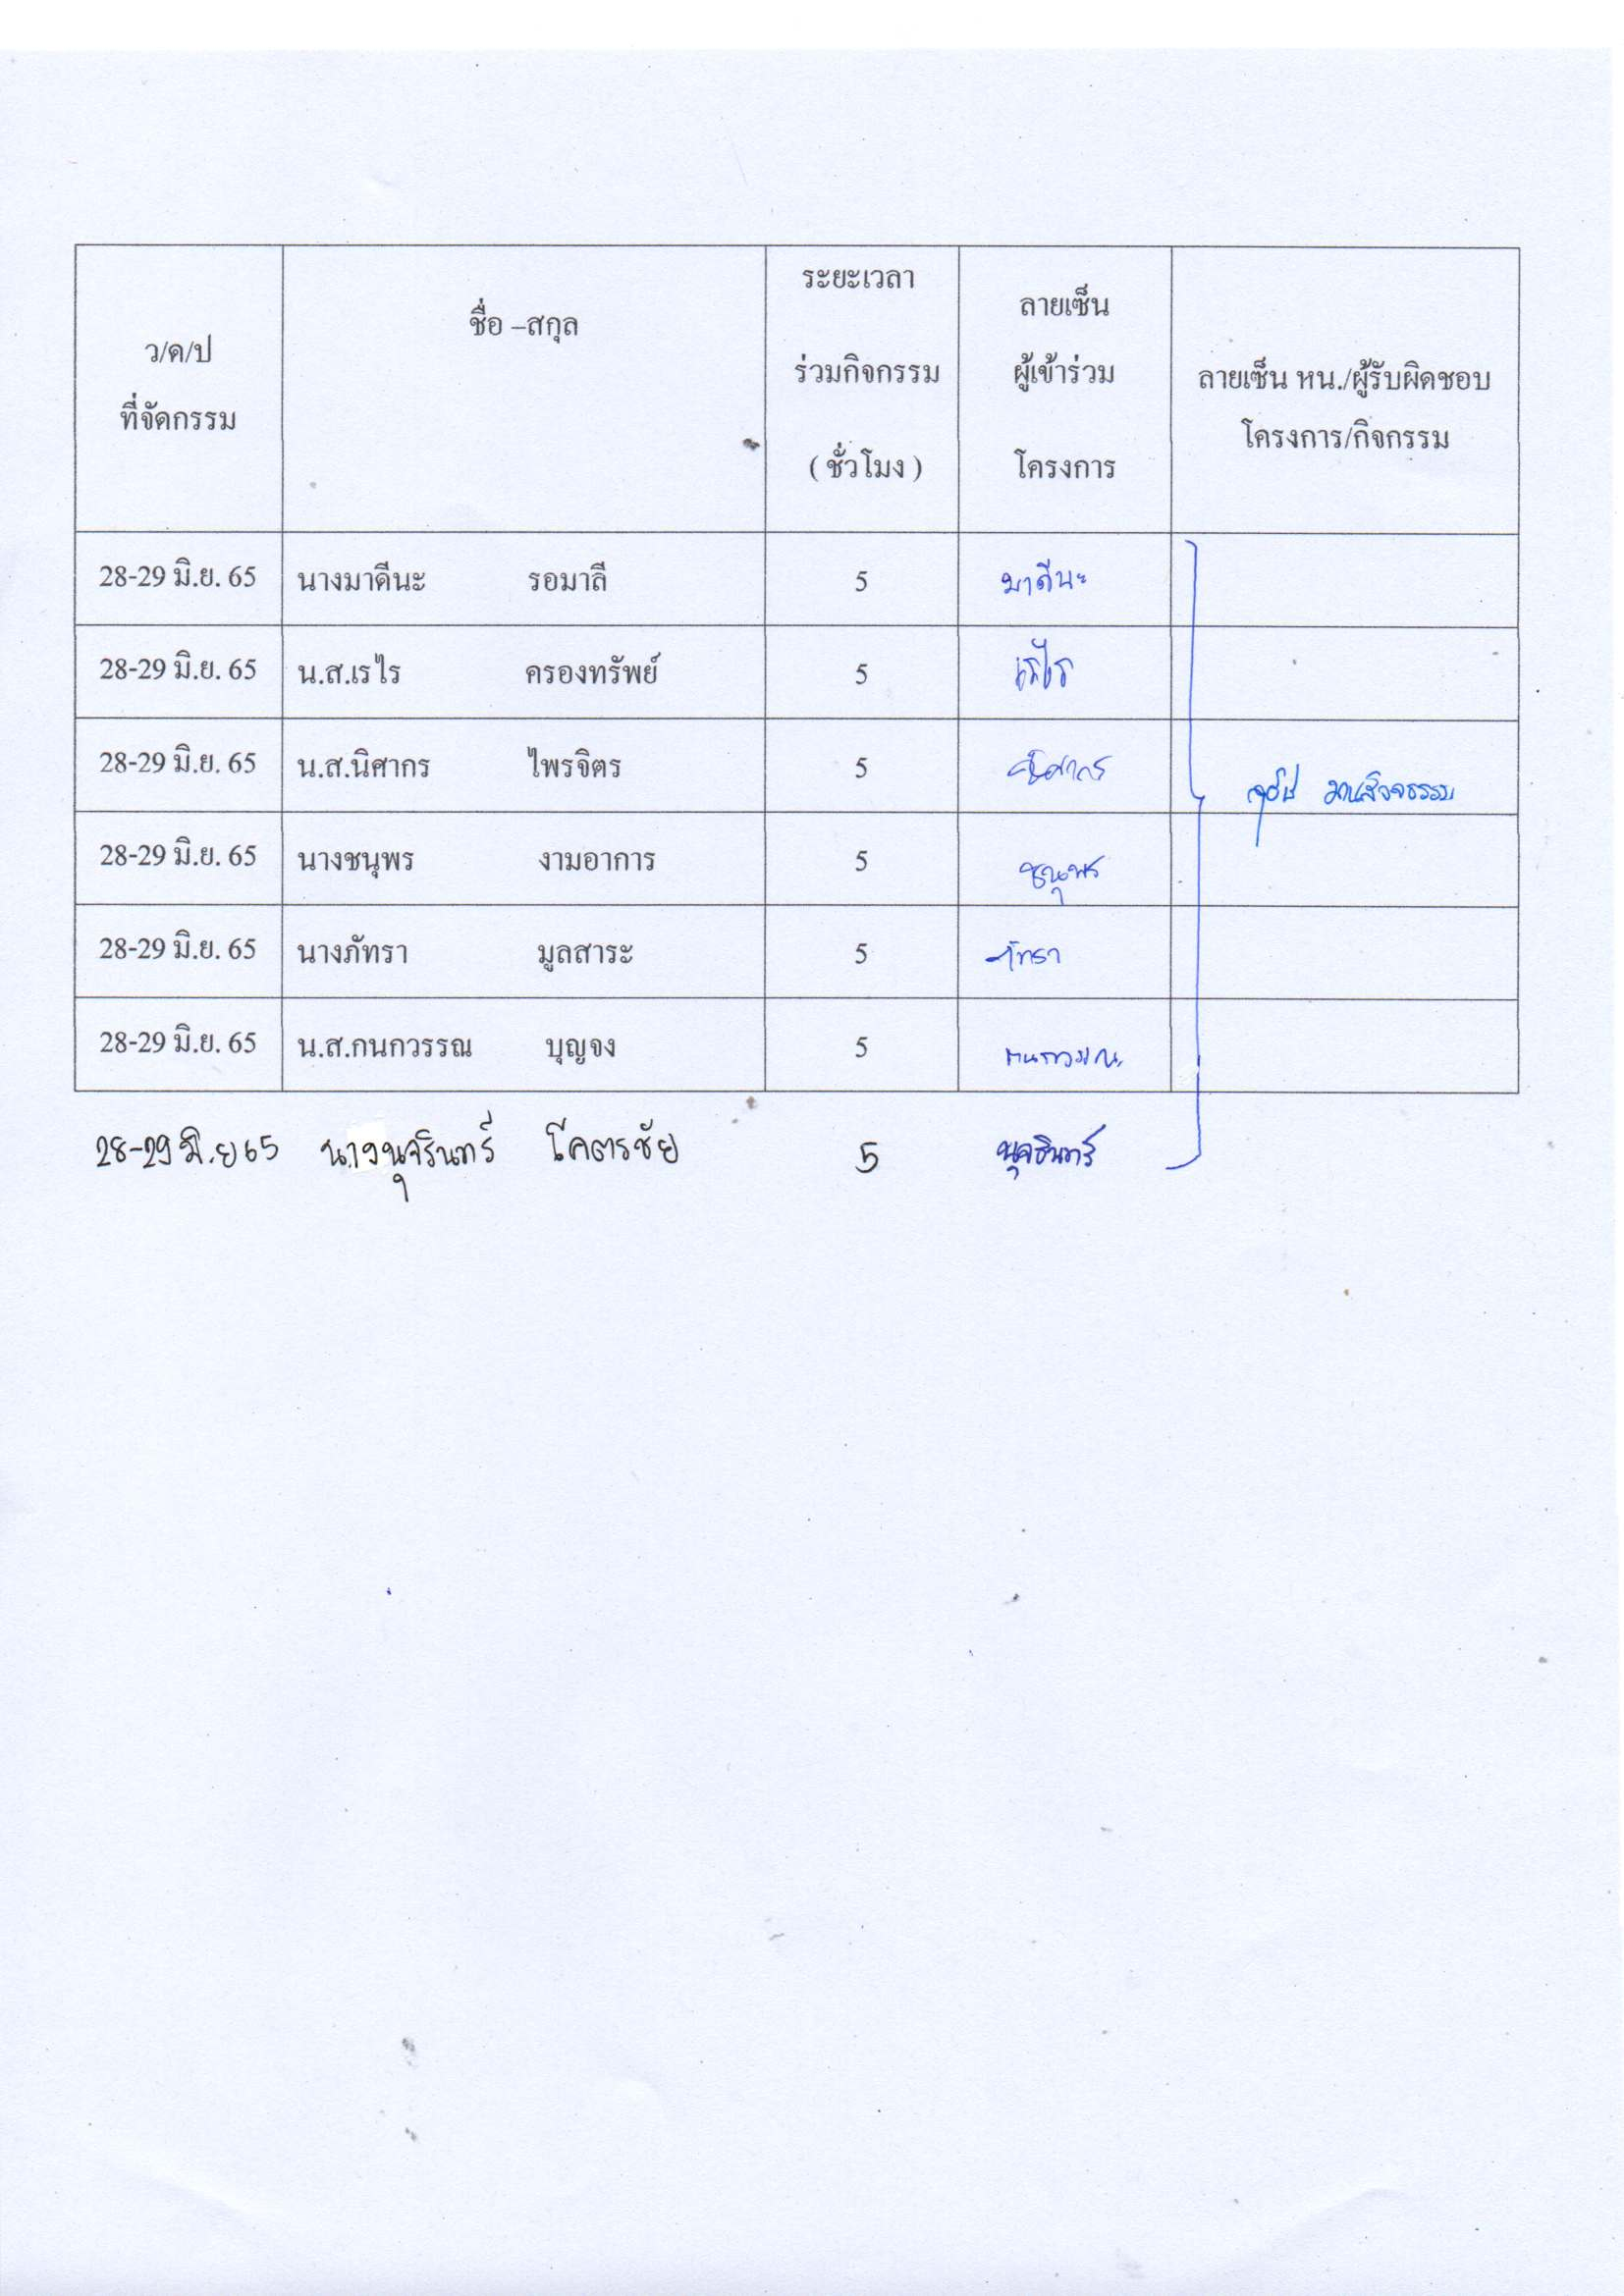 ว/ค/ป
ที่จัดกรรม
ชื่อ –สกุล
ระยะเวลา
ร่วมกิจกรรม
( ชั่วโมง )
ลายเซ็น
ผู้เข้าร่วม
โครงการ
ลายเซ็น หน./ผู้รับผิดชอบ
โครงการ/กิจกรรม
28-29 มิ.ย. 65 นางมาดีนะ รอมาลี 5 มาดีนะ
28-29 มิ.ย. 65 น.ส.เรไร ครองทรัพย์ 5 เรไร
28-29 มิ.ย. 65 น.ส.นิศากร ไพรจิตร 5 นิศากร
28-29 มิ.ย. 65 นางชนุพร งามอาการ 5 ชนุพร
28-29 มิ.ย. 65 นางภัทรา มูลสาระ 5 ภัทรา
28-29 มิ.ย. 65 น.ส.กนกวรรณ บุญจง 5 กนกวรรณ
28-29 มิ.ย 65 นางนุจรินทร์ โคตรชัย 5 นุจรินทร์